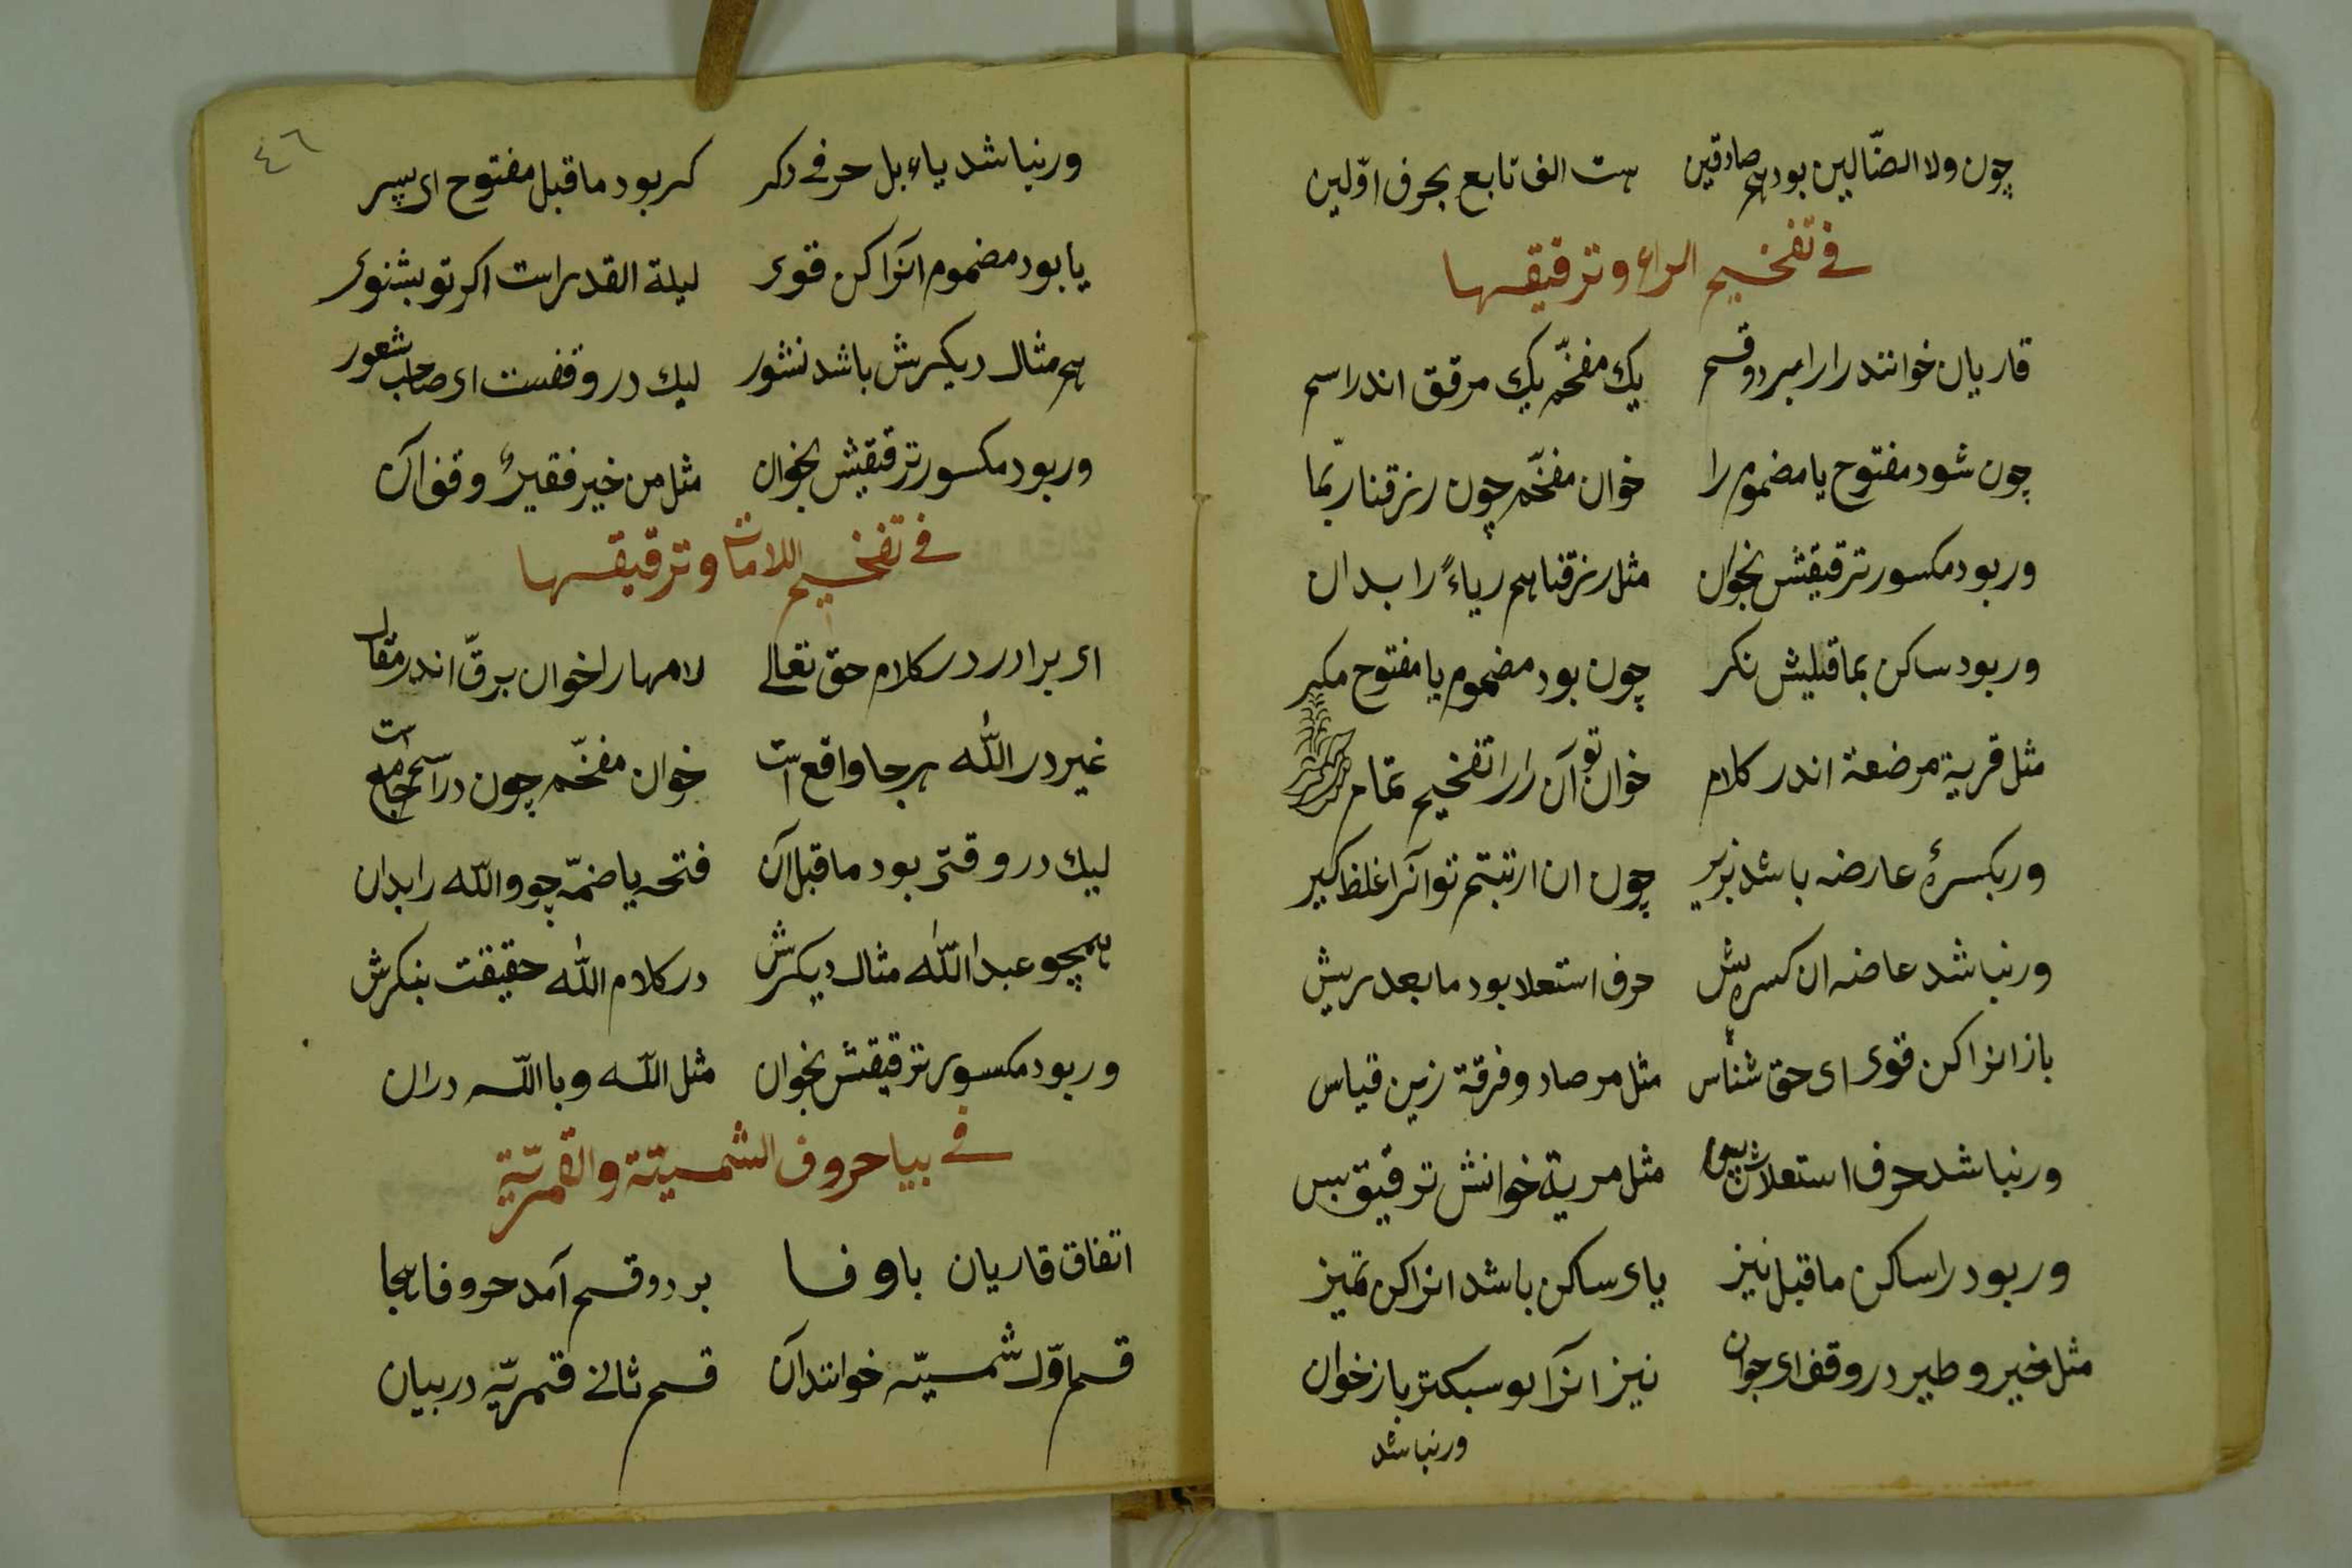 چون ولا الضّالین بود هم صادقین هست الف تابع بحرف اوّلین
فی تفخیم الراء وترقیقها
قاریان خوانند را را بر دو قسم یك مفخّم یك مرقق اندر اسم
چون شود مفتوح یا مضموم را خوان مفخّم چون رزقنا ربّما
ور بود مکسور ترقیقش بخوان مثل رزقنا هم ریاءً را بدان
ور بود ساکن بماقبلیش نکر چون بود مضموم یا مفتوح مکر
مثل قریة مرضعة اندر کلام خوان تو آن را را تفخیم تمام
ور بکسرهٔ عارضه باشد بزیر چون ان ارتبتم تو آنرا غلظ کیر
ور نباشد عاضه ان کسره پیش حرف استعلا بود مابعد ریش
باز انرا کن قوی ای حق شناس مثل مرصاد و فرقة زین قیاس
ور نباشد حرف استعلاش پس مثل مریة خوانش ترقیق بس
ور بود را ساکن ماقبل نیز یای ساکن باشد انرا کن تمیز
مثل خیر و طیر در وقف ای جوان نیز انرا بو سبکتر باز خوان
ور نباشد
٤٦
ور نباشد یاء بل حرفی دکر کر بود ماقبل مفتوح ای پسر
یا بود مضموم انرا کن قوی لیلة القدر است اکر تو بشنوی
هم مثال دیکرش باشد نشور لیك در وقفست ای صاحب شعور
ور بود مکسور ترقیقش بخوان مثل من خیر فقیرٌ وقف آن
فی تفخیم اللامات وترقیقها
ای برادر در کلام حق تعالی لامها را خوان برقّ اندر مقال
غیر در الله هر جا واقع است خوان مفخّم چون در اسم جامع است
لیك در وقتی بود ماقبل آن فتحه یا ضمّه چو والله را بدان
همچو عبدالله مثال دیکرش در کلام الله حقیقت بنکرش
ور بود مکسور ترقیقش بخوان مثل الله و باالله دران
فی بیا حروف الشمسیّة والقمریّة
اتفاق قاریان باوفا بر دو قسم آمد حروفا هجا
قسم اوّل شمسیّه خوانند آن قسم ثانی قمریّه در بیان